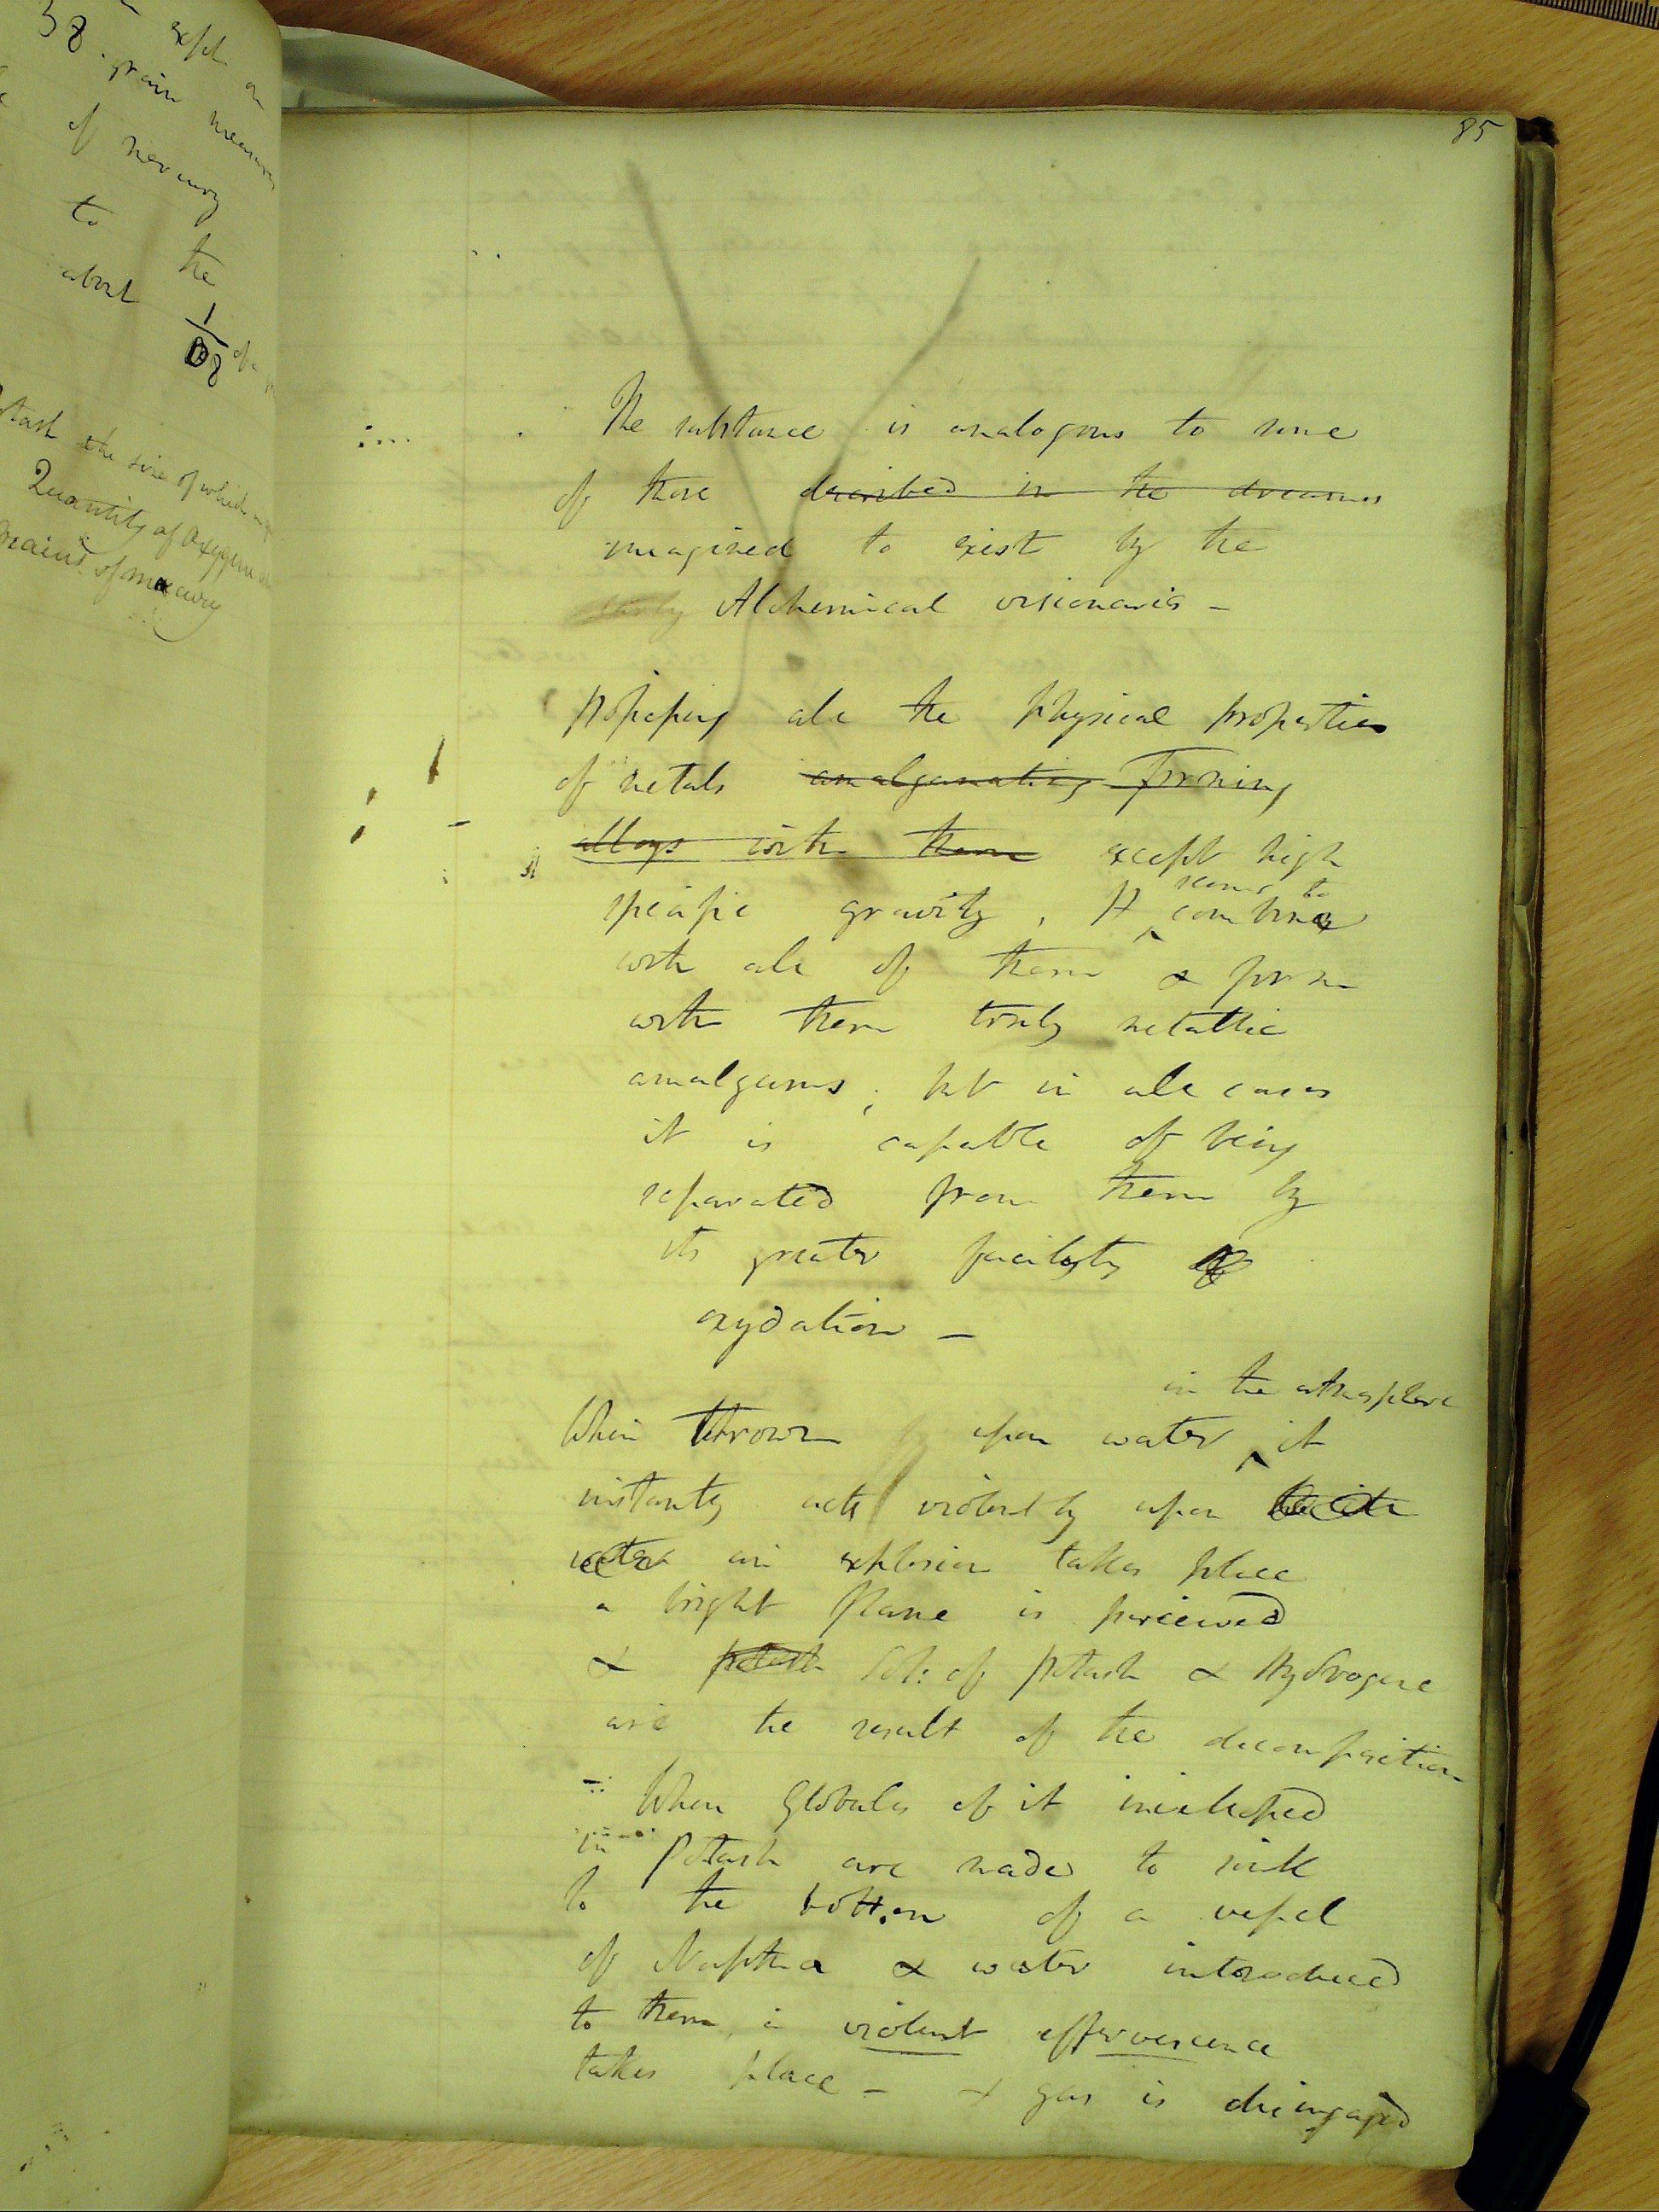 38. expt on
grain measures
of mercury
to the
about 1/108 of a
potash the size of which
Quantity of Oxygen
grains of mercury
85
The substance is analogous to some
of those described in the dreams
imagined to exist by the
early Alchemical visionaries -
Possessing all the physical properties
of metals amalgamating forming
alloys with them except high
specific gravity, It combine
seems to
with all of them & form
with them truly metallic
amalgams; but in all cases
it is capable of being
separated from them by
its greater facility of
oxydation -
in the atmosphere
When thrown upon water it
instantly acts violently upon
water an explosion takes place
a bright flame is perceived
& potash Sol: of potash & Hydrogene
are the result of the decomposition
- When Globules of it inveloped
in Potash are made to sink
to the bottom of a vessel
of Naptha & water introduced
to them, a violent effervescence
takes place - & gas is disingaged